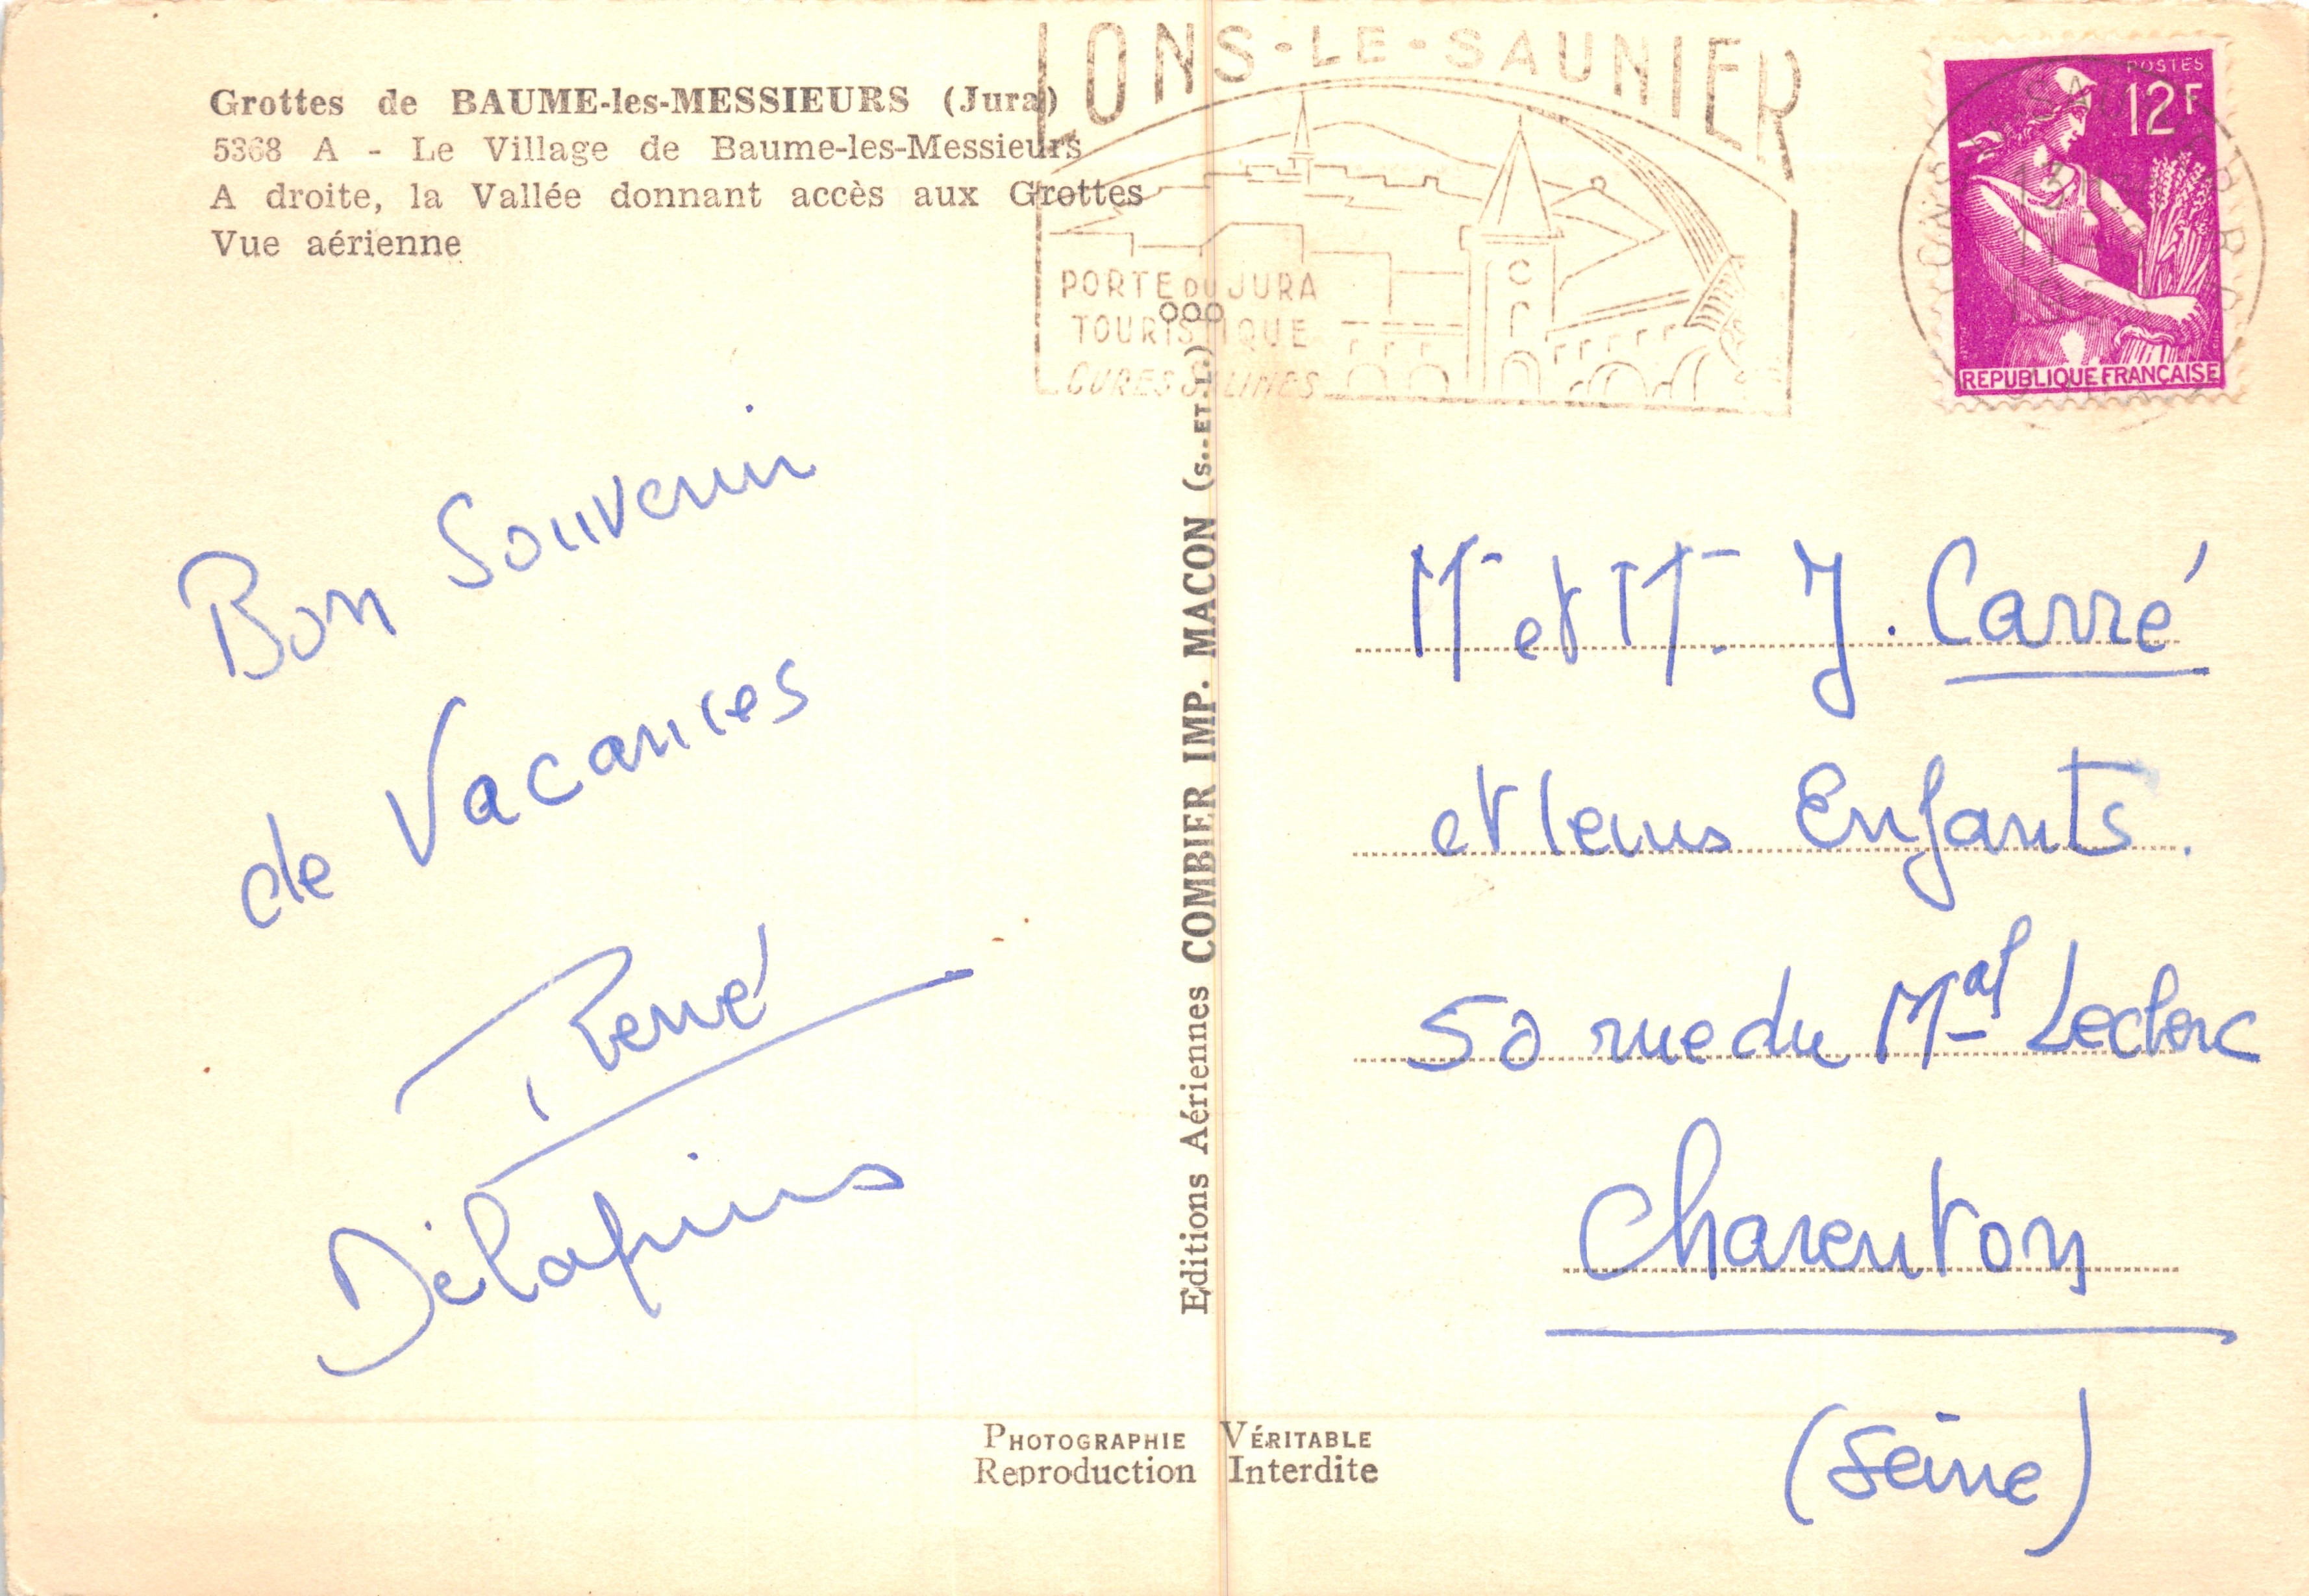 Grottes de BAUME-les-MESSIEURS (Jura)
5368 A - Le Village de Baume-les-Messieurs
A droite, la Vallée donnant accès aux Grottes
Vue aérienne
LONS-LE-SAUNIER
PORTE DU JURA
TOURISTIQUE
CURES SALINES
ooo
POSTES
12F
REPUBLIQUE FRANÇAISE
Bon Souvenir
de Vacances
Editions Aériennes COMBIER IMP. MACON (S.-ET-L.)
Mr et Mme J. Carré
et leurs Enfants.
50 rue du Mal Leclerc
Charenton
(Seine)
PHOTOGRAPHIE VÉRITABLE
Reproduction Interdite